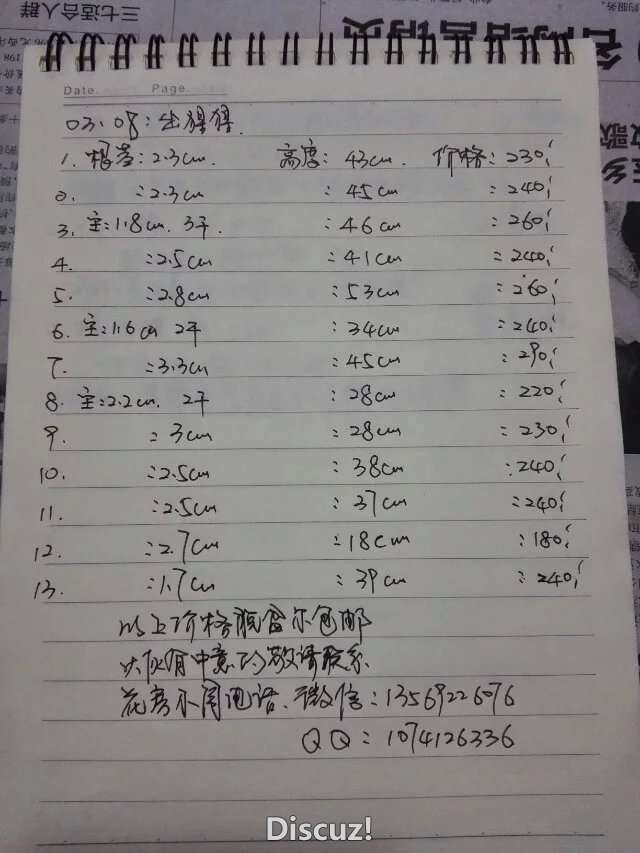 三七适合人群
Date. Page.
03.08:出猩猩.
1. 根茎:2.3cm. 高度: 43cm. 价格: 230,
2. :2.3cm :45cm :240,
3. 主:1.8cm. 3干. :46cm :260,
4. :2.5cm :41cm :240,
5. :2.8cm :53cm :260,
6. 主:1.6cm 2干 :34cm :240,
7. :3.3cm :45cm :290,
8. 主:2.2cm. 2干 :28cm :220,
9. :3cm :28cm :230,
10. :2.5cm :38cm :240,
11. :2.5cm :37cm :240,
12. :2.7cm :18cm :180,
13. :1.7cm :39cm :240,
以上价格 包邮
有中意的敬请联系
花 小周电话.微信:13569226076
QQ:1074126336
Discuz!